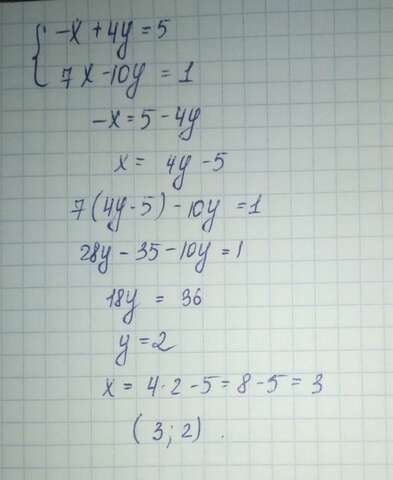 -x + 4y = 5
7x - 10y = 1
-x = 5 - 4y
x = 4y - 5
7(4y - 5) - 10y = 1
28y - 35 - 10y = 1
18y = 36
y = 2
x = 4·2 - 5 = 8 - 5 = 3
(3; 2).